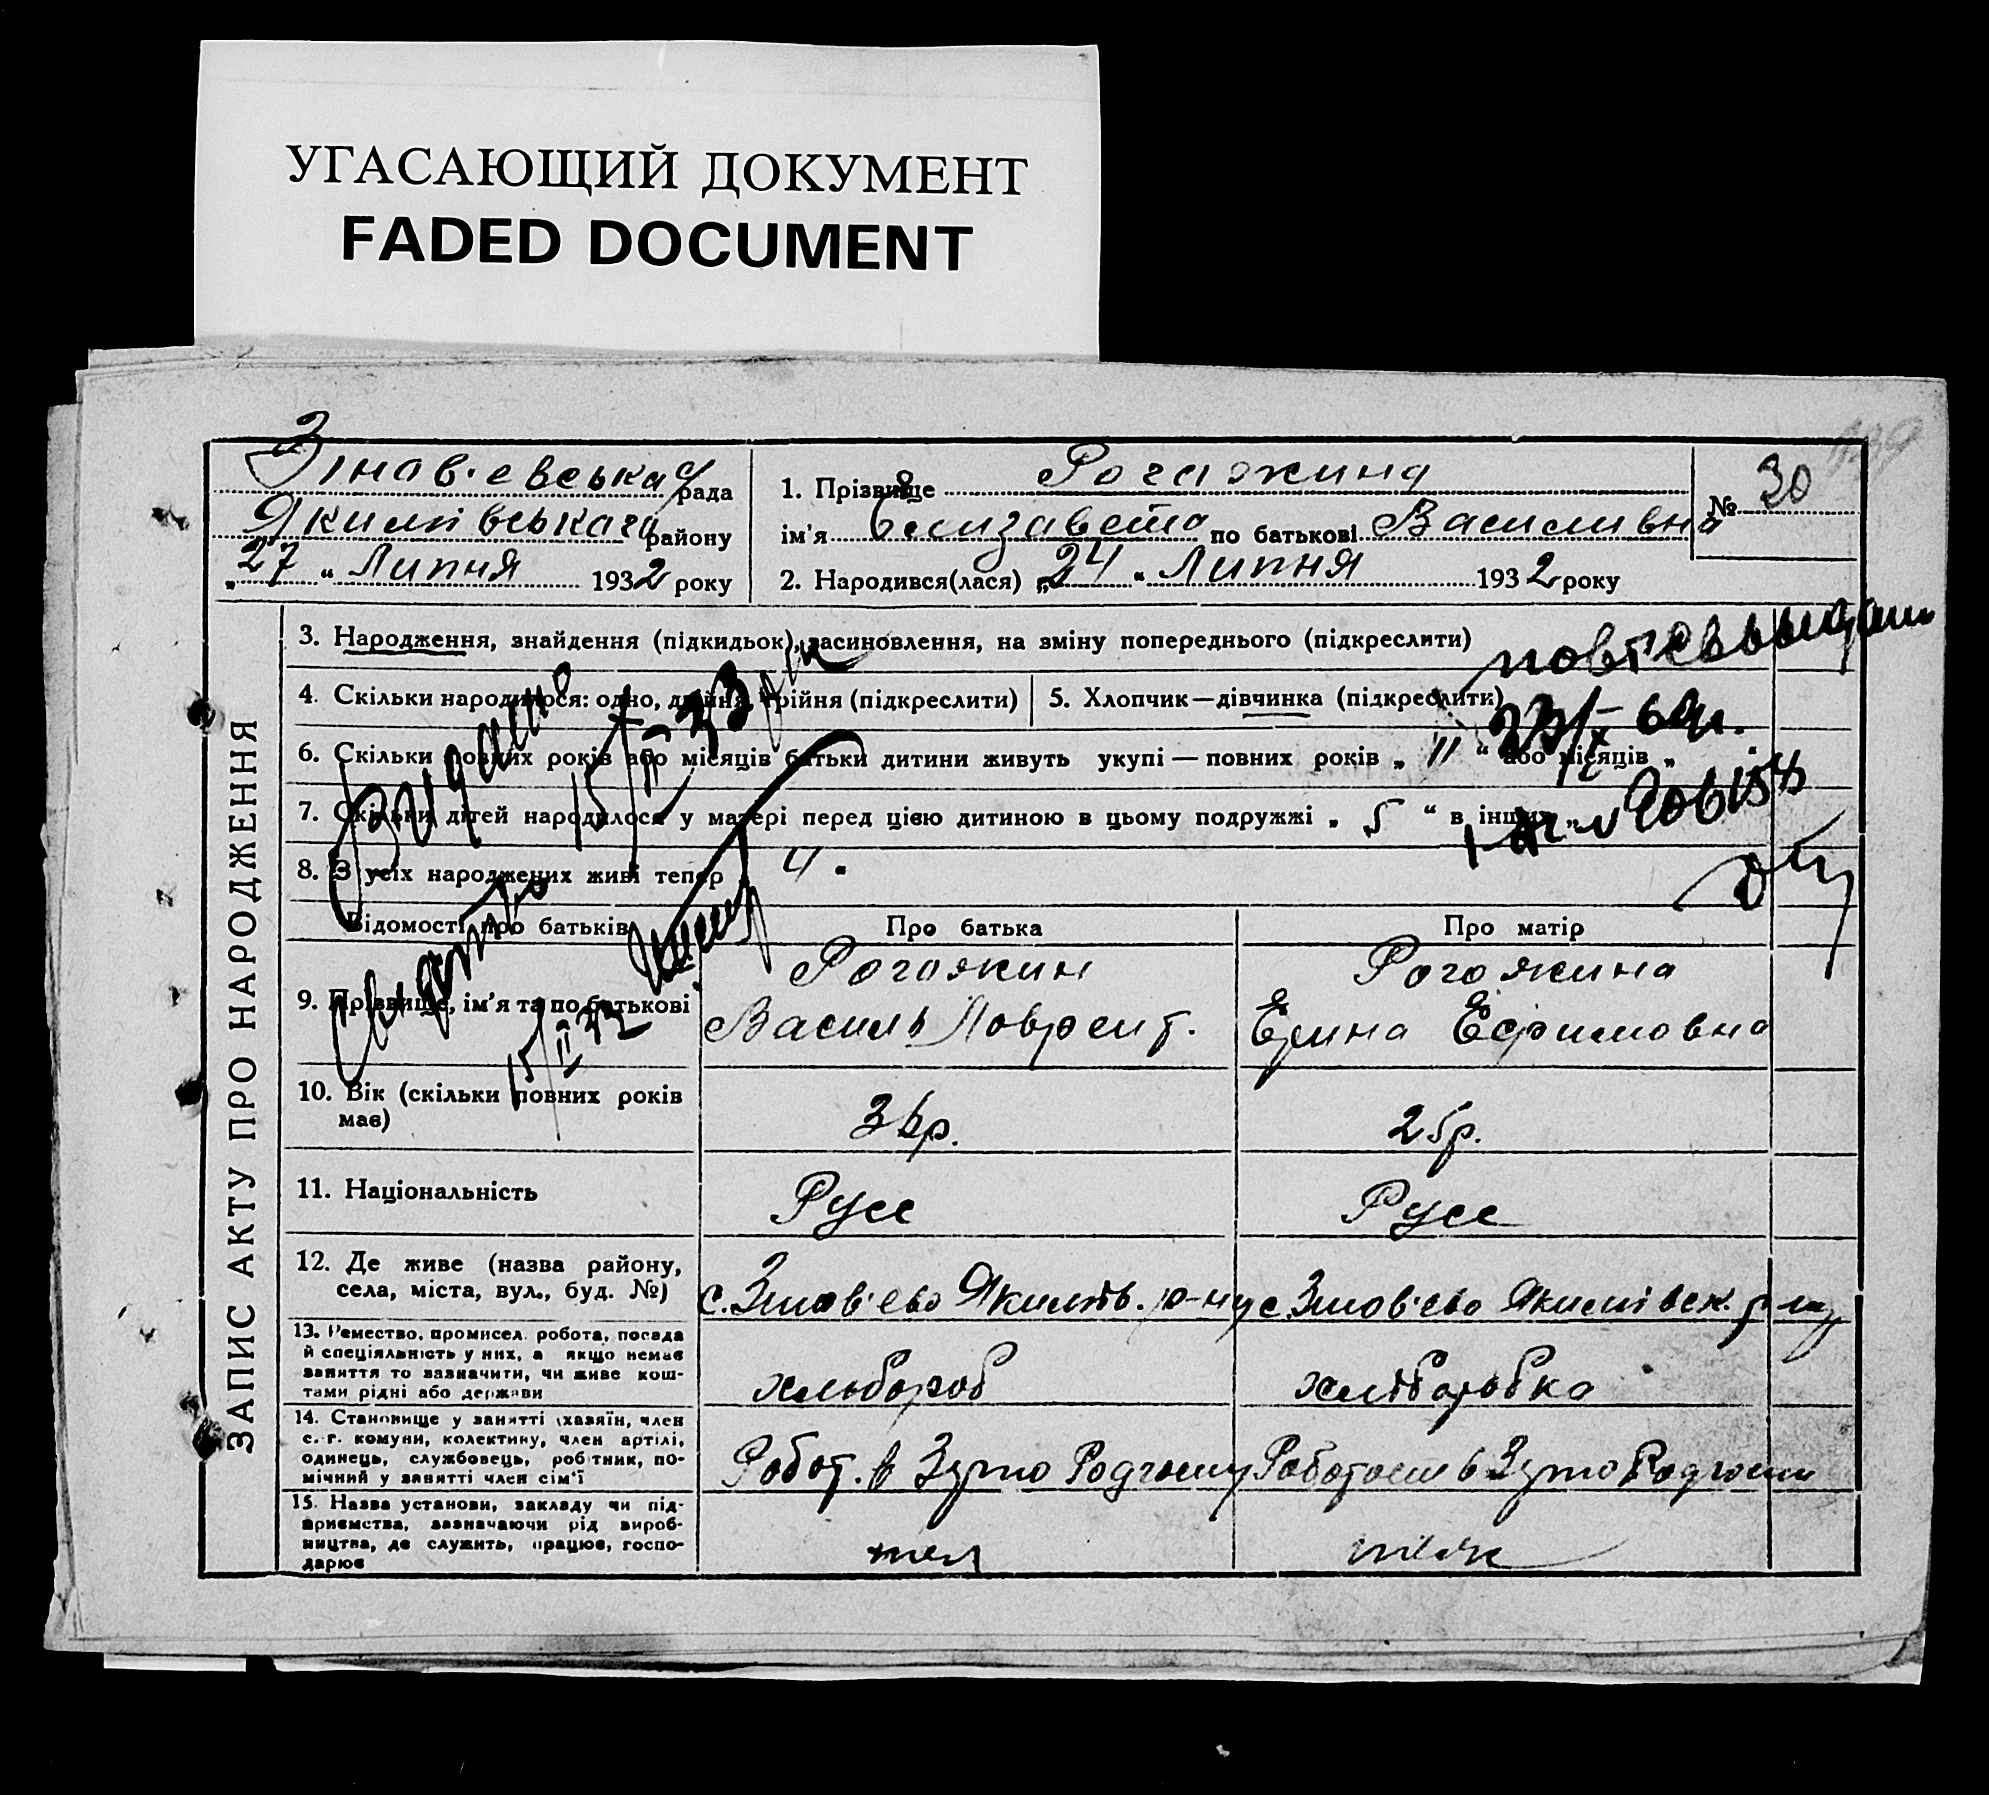 УГАСАЮЩИЙ ДОКУМЕНТ
FADED DOCUMENT
Зінов'євська рада
Якимівського району
„27“ Липня 1932 року
1. Прізвище Рогожина
ім'я Єлизавета по батькові Василивна
№ 30
2. Народився(лася) „24“ Липня 1932 року
ЗАПИС АКТУ ПРО НАРОДЖЕННЯ
3. Народження, знайдення (підкидьок), засиновлення, на зміну попереднього (підкреслити)
4. Скільки народилося: одно, двійня, трійня (підкреслити)
5. Хлопчик—дівчинка (підкреслити)
6. Скільки повних років або місяців батьки дитини живуть укупі — повних років „ 11 “ або місяців „
7. Скільки дітей народилося у матері перед цією дитиною в цьому подружжі „ 5 “ в інших „
8. З усіх народжених живі тепер „ 4 “
Відомості про батьків
Про батька
Про матір
9. Прізвище, ім'я та по батькові
Рогожин
Василь Лаврент.
Рогожина
Ерина Ефимовна
10. Вік (скільки повних років має)
36р.
25р.
11. Національність
Русс
Русс
12. Де живе (назва району,
села, міста, вул., буд. №)
с. Зінов'ево Якимів. р-ну
с. Зінов'ево Якимівськ. р-ну
13. Ремество, промисел, робота, посада
й спеціяльність у них, а якщо немає
заняття то зазначити, чи живе кош-
тами рідні або держави
хлібороб
хліборобка
14. Становище у занятті (хазяїн, член
с.-г. комуни, колективу, член артілі,
одинець, службовець, робітник, по-
мічний у занятті член сім'ї
Робот. в Зерно Радгоспу
Работает в Зерно Радгоспи
15. Назва установи, закладу чи під-
приємства, зазначаючи рід вироб-
ництва, де служить, працює, госпо-
дарює